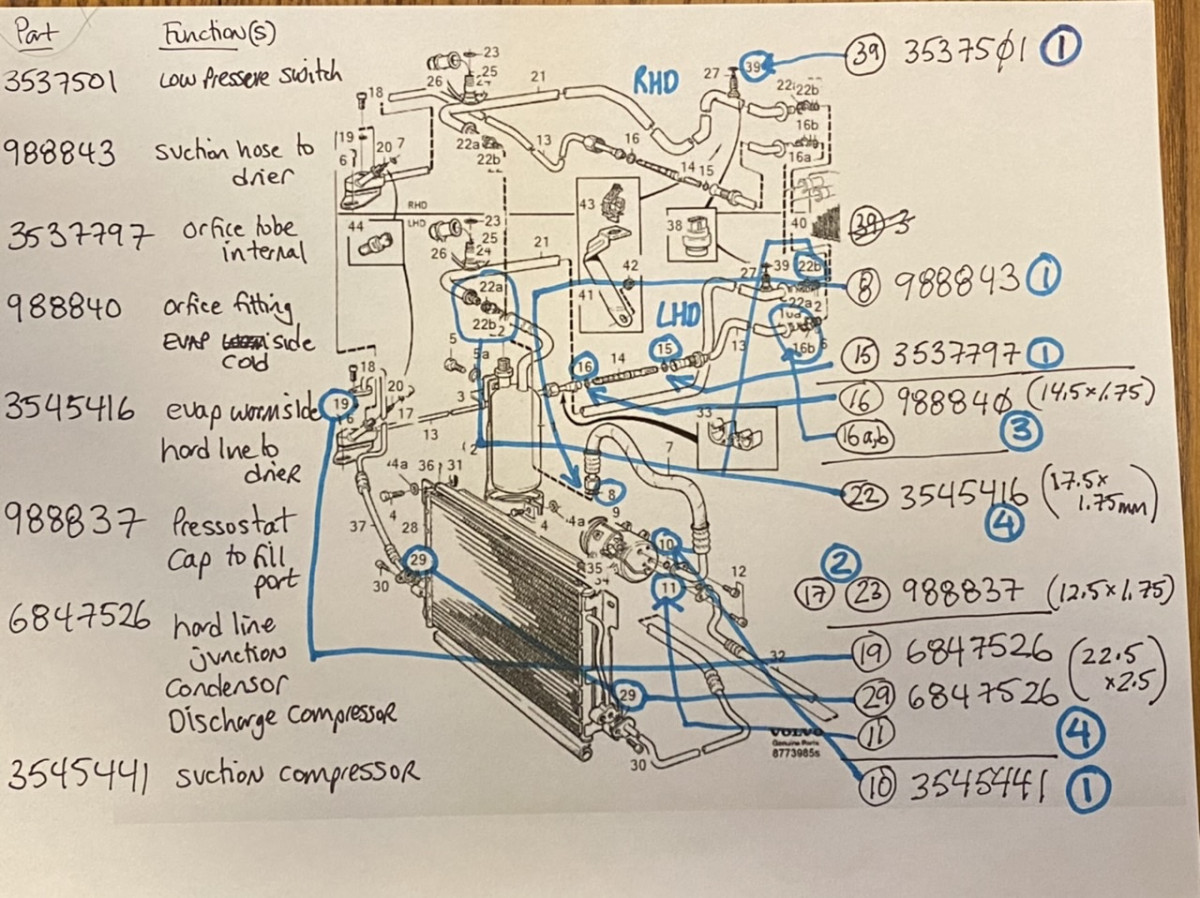 Part Function(s)
3537501 Low Pressere switch
988843 suction hose to
drier
3537797 orfice tobe
internal
988840 orfice fitting
EVAP side
cold
3545416 evap wormside
hard line to
drier
988837 Pressostat
Cap to fill
port
6847526 hard line
junction
Condensor
Discharge compressor
3545441 suction compressor
RHD
LHD
39 3537501 1
39
8 988843 1
15 3537797 1
16 988840 (14.5×1.75)
16a,b 3
22 3545416 (17.5×
1.75mm)
4
2
17 23 988837 (12.5×1.75)
19 6847526 (22.5
×2.5)
29 6847526
11 4
10 3545441 1
23
25
24
26
21
18
27
39
22b
19
6
20
7
22a
22b
13
16
14
15
16b
16a
RHD
LHD
44
43
38
40
42
41
23
25
24
26
21
22a
22b
27
39
22b
22a
16b
13
5
5a
3
16
14
15
18
20
19
17
6
13
33
7
8
9
4a
36
31
4
28
37
29
30
4
4a
10
35
11
12
32
29
30
VOLVO
Genuine Parts
8773985s